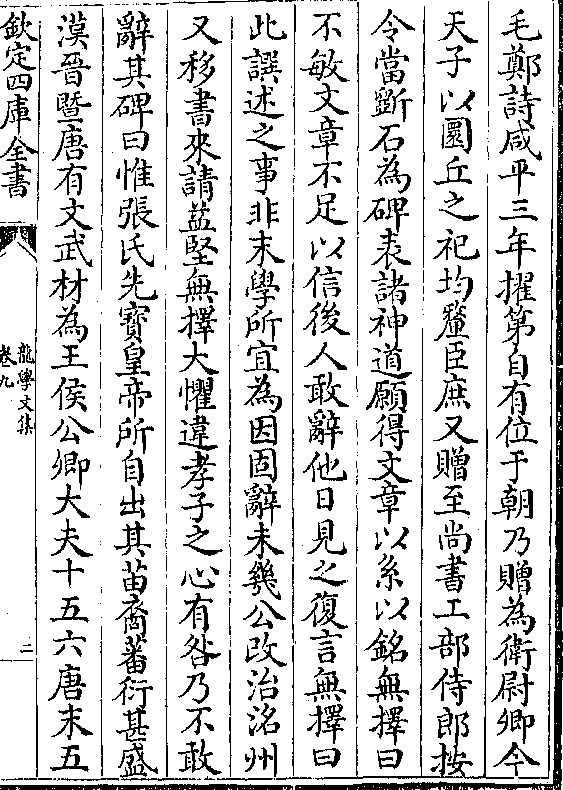 毛鄭詩咸平三年擢第自有位于朝乃贈為衛尉卿今
天子以圜丘之祀均釐臣庶又贈至尚書工部侍郎按
令當斲石為碑表諸神道願得文章以系以銘無擇曰
不敏文章不足以信後人敢辭他日見之復言無擇曰
此譔述之事非末學所宜為因固辭未幾公改治洺州
又移書來請益堅無擇大懼違孝子之心有咎乃不敢
辭其碑曰惟張氏先寳皇帝所自出其苗裔蕃衍甚盛
漢晉暨唐有文武材為王侯公卿大夫十五六唐末五
欽定四庫全書
龍學文集
卷九
二